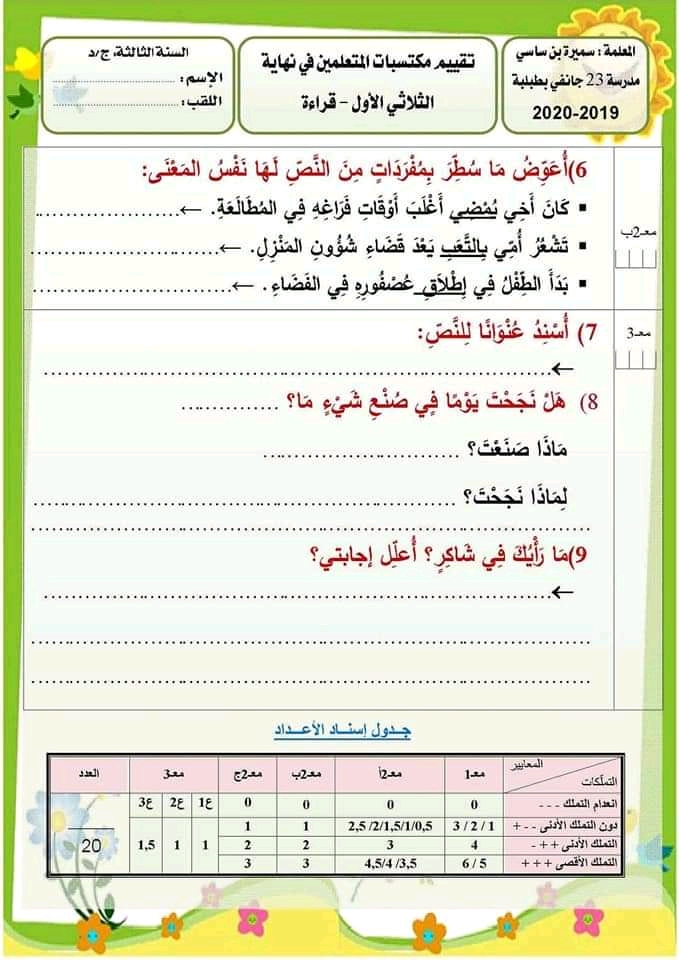 المعلمة : سميرة بن ساسي
مدرسة 23 جانفي بطبلبة
2020-2019
تقييم مكتسبات المتعلمين في نهاية
الثلاثي الأول - قراءة
السنة الثالثة، ج/د
الإسم : ..........................
اللقب: ..........................
معـ2ب
6)أُعَوِّضُ مَا سُطِّرَ بِمُفْرَدَاتٍ مِنَ النَّصِّ لَهَا نَفْسُ المَعْنَى:
▪ كَانَ أَخِي يُمْضِي أَغْلَبَ أَوْقَاتِ فَرَاغِهِ فِي المُطَالَعَةِ. ←..........................
▪ تَشْعُرُ أُمِّي بِالتَّعَبِ بَعْدَ قَضَاءِ شُؤُونِ المَنْزِلِ. ←..........................
▪ بَدَأَ الطِّفْلُ فِي إِطْلَاقِ عُصْفُورِهِ فِي الفَضَاءِ. ←..........................
معـ3
7) أُسْنِدُ عُنْوَانًا لِلنَّصِّ:
←..........................
8) هَلْ نَجَحْتَ يَوْمًا فِي صُنْعِ شَيْءٍ مَا؟ .............
مَاذَا صَنَعْتَ؟ ..........................
لِمَاذَا نَجَحْتَ؟ ..........................
..........................
9)مَا رَأْيُكَ فِي شَاكِرٍ؟ أُعَلِّل إجابتي؟
←..........................
..........................
..........................
جـدول إسنـاد الأعـداد
المعايير التملّكات معـ1 معـ2أ معـ2ب معـ2ج معـ3 العدد
ع1 ع2 ع3
انعدام التملك - - - 0 0 0 0 0
دون التملك الأدنى - - + 1 / 2 / 3 0,5/1/1,5/2/ 2,5 1 1
التملك الأدنى + + - 4 3 2 2 1 1 1,5
التملك الأقصى + + + 5 / 6 3,5/ 4/4,5 3 3
20